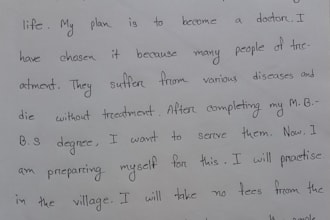 life. My plan is to become a doctor. I
have chosen it because many people of tre-
atment. They suffer from various diseases and
die without treatment. After completing my M.B.-
B.S degree, I want to serve them. Now, I
am preparing myself for this. I will practise
in the village. I will take no fees from the